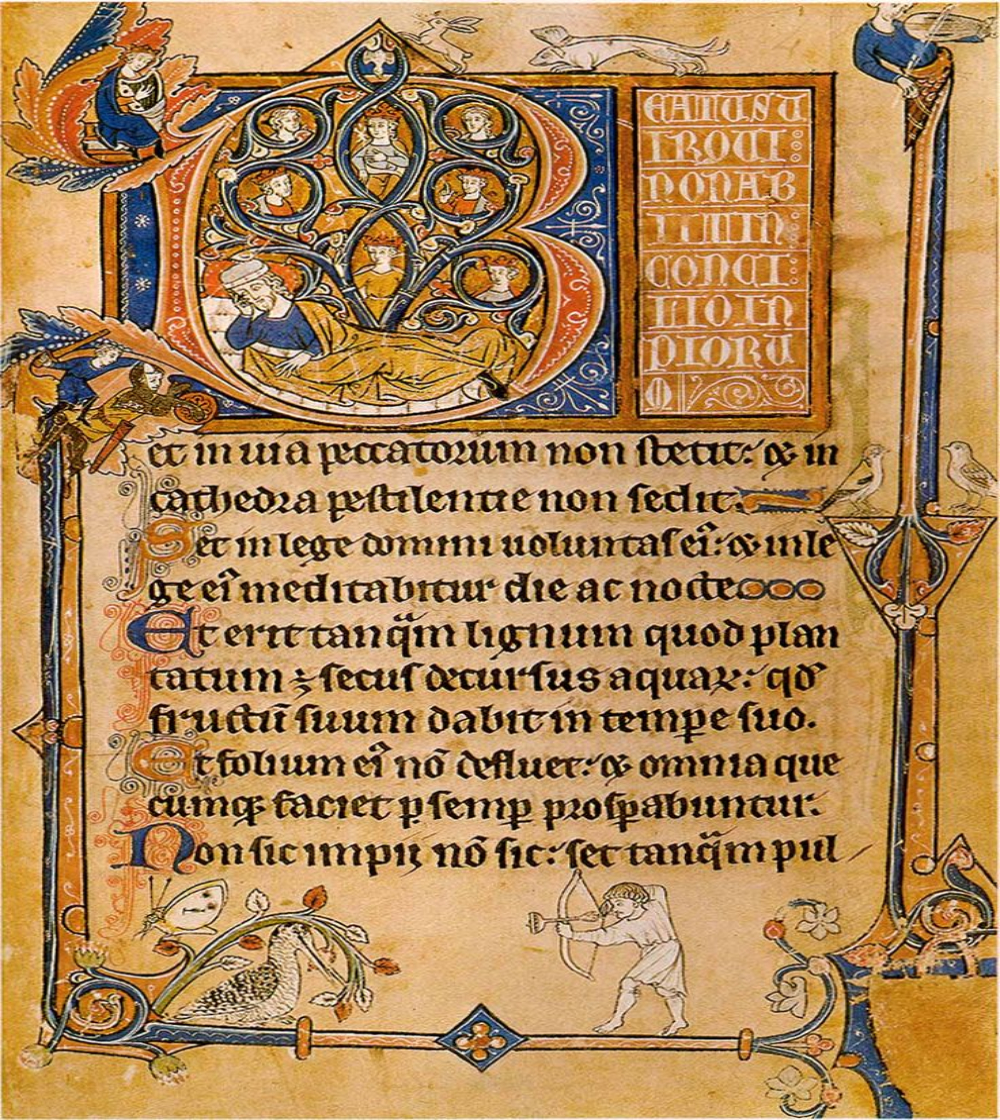 BEATUS U
IR QUI
NON AB
IIT IN
CONCI
LIO IN
PIORU
M
et in uia peccatorum non stetit: & in
cathedra pestilentie non sedit.
Set in lege domini uoluntas ei᷒: & in le
ge ei᷒ meditabitur die ac nocte
Et erit tanq̃m lignum quod plan
tatum ⁊ secus decursus aquaꝝ: qd̕
fructū suum dabit in tempꝑe suo.
Et folium ei᷒ nō defluet: & omnia que
cumqꝫ faciet ꝑ semꝑ prosꝑabuntur.
Non sic impij nō sic: set tanq̃m pul